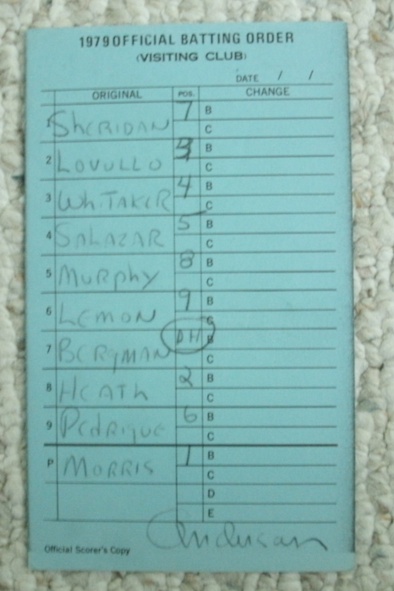 1979 OFFICIAL BATTING ORDER
(VISITING CLUB)
DATE / /
ORIGINAL POS. CHANGE
1 SHERIDAN 7 B
C
2 LOVULLO 3 B
C
3 WHITAKER 4 B
C
4 SALAZAR 5 B
C
5 MURPHY 8 B
C
6 LEMON 9 B
C
7 BERGMAN DH B
C
8 HEATH 2 B
C
9 PEDRIQUE 6 B
C
P MORRIS 1 B
C
D
E
Anderson
Official Scorer's Copy